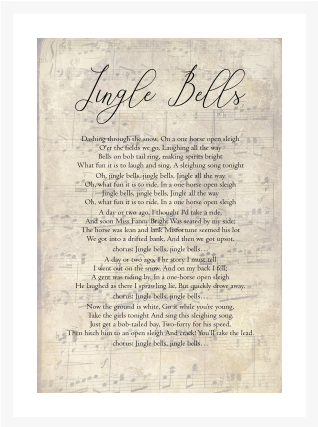 Jingle Bells
Dashing through the snow, On a one horse open sleigh
O'er the fields we go, Laughing all the way
Bells on bob tail ring, making spirits bright
What fun it is to laugh and sing, A sleighing song tonight
Oh, jingle bells, jingle bells, Jingle all the way
Oh, what fun it is to ride, In a one horse open sleigh
Jingle bells, jingle bells, Jingle all the way
Oh, what fun it is to ride, In a one horse open sleigh
A day or two ago, I thought I'd take a ride,
And soon Miss Fanny Bright Was seated by my side;
The horse was lean and lank Misfortune seemed his lot
We got into a drifted bank, And then we got upsot,
chorus: Jingle bells, jingle bells…
A day or two ago, The story I must tell
I went out on the snow, And on my back I fell;
A gent was riding by, In a one-horse open sleigh
He laughed as there I sprawling lie, But quickly drove away.
chorus: Jingle bells, jingle bells…
Now the ground is white, Go it while you're young,
Take the girls tonight And sing this sleighing song.
Just get a bob-tailed bay, Two-forty for his speed.
Then hitch him to an open sleigh And crack! You'll take the lead.
chorus: Jingle bells, jingle bells…